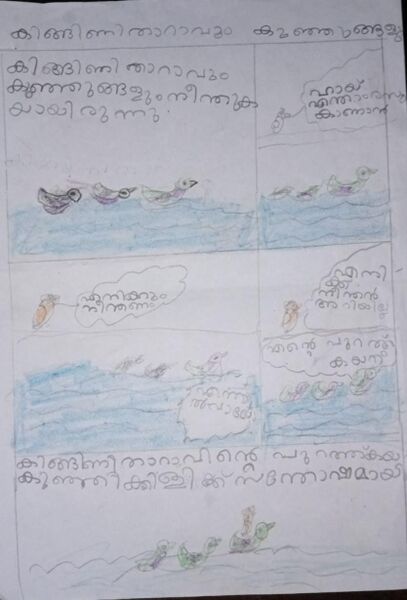 കിങ്ങിണി താറാവും കുഞ്ഞുങ്ങളും
കിങ്ങിണി താറാവും
കുഞ്ഞുങ്ങളും നീന്തുക
യായിരുന്നു.
ഹായ്
എന്താരസം
കാണാൻ
എനിക്കും
നീന്തണം
എനി
ക്ക്
നീന്താൻ
അറിയില്ല
എൻ്റെ പുറത്ത്
കയറൂ
എന്നാ
കിങ്ങിണി താറാവിൻ്റെ പുറത്ത്കയ
കുഞ്ഞിക്കിളിക്ക് സന്തോഷമായി